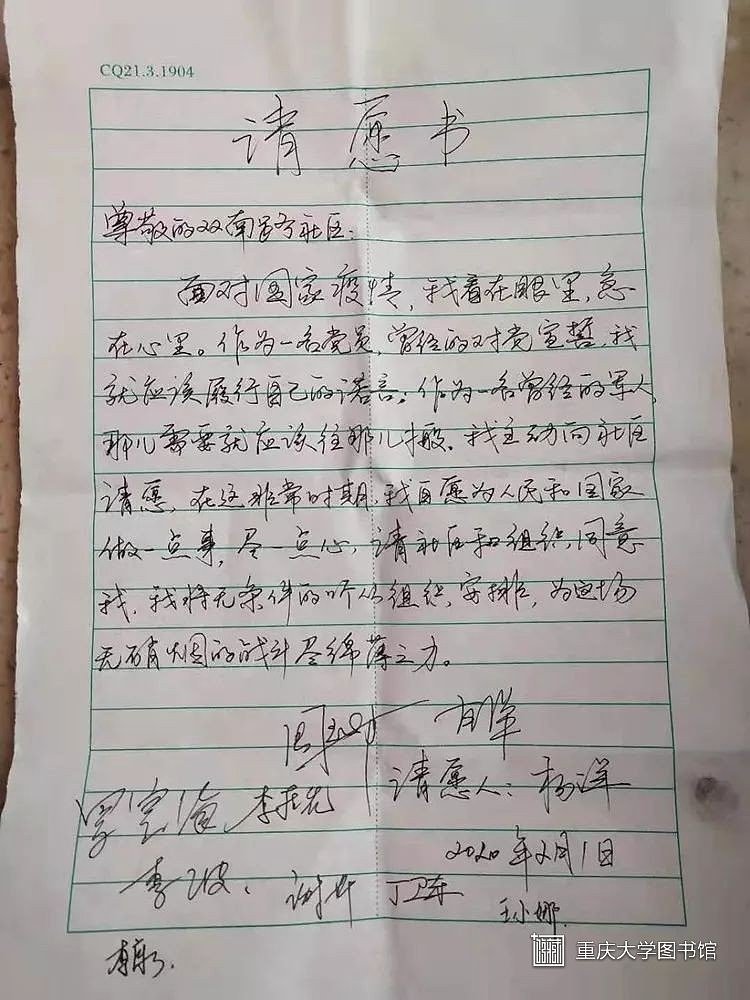 CQ21.3.1904
请愿书
尊敬的双南路社区：
面对国家疫情，我看在眼里，急
在心里。作为一名党员，曾经的对党宣誓，我
就应该履行自己的诺言。作为一名曾经的军人，
那儿需要就应该往那儿去。我主动向社区
请愿，在这非常时期，我自愿为人民和国家
做一点事，尽一点心，请社区和组织同意
我，我将无条件的听从组织安排，为这场
无硝烟的战斗尽绵薄之力。
肖军
李在先
请愿人：杨洋
2020年2月1日
李波、
丁卫东
王小娜
重庆大学图书馆